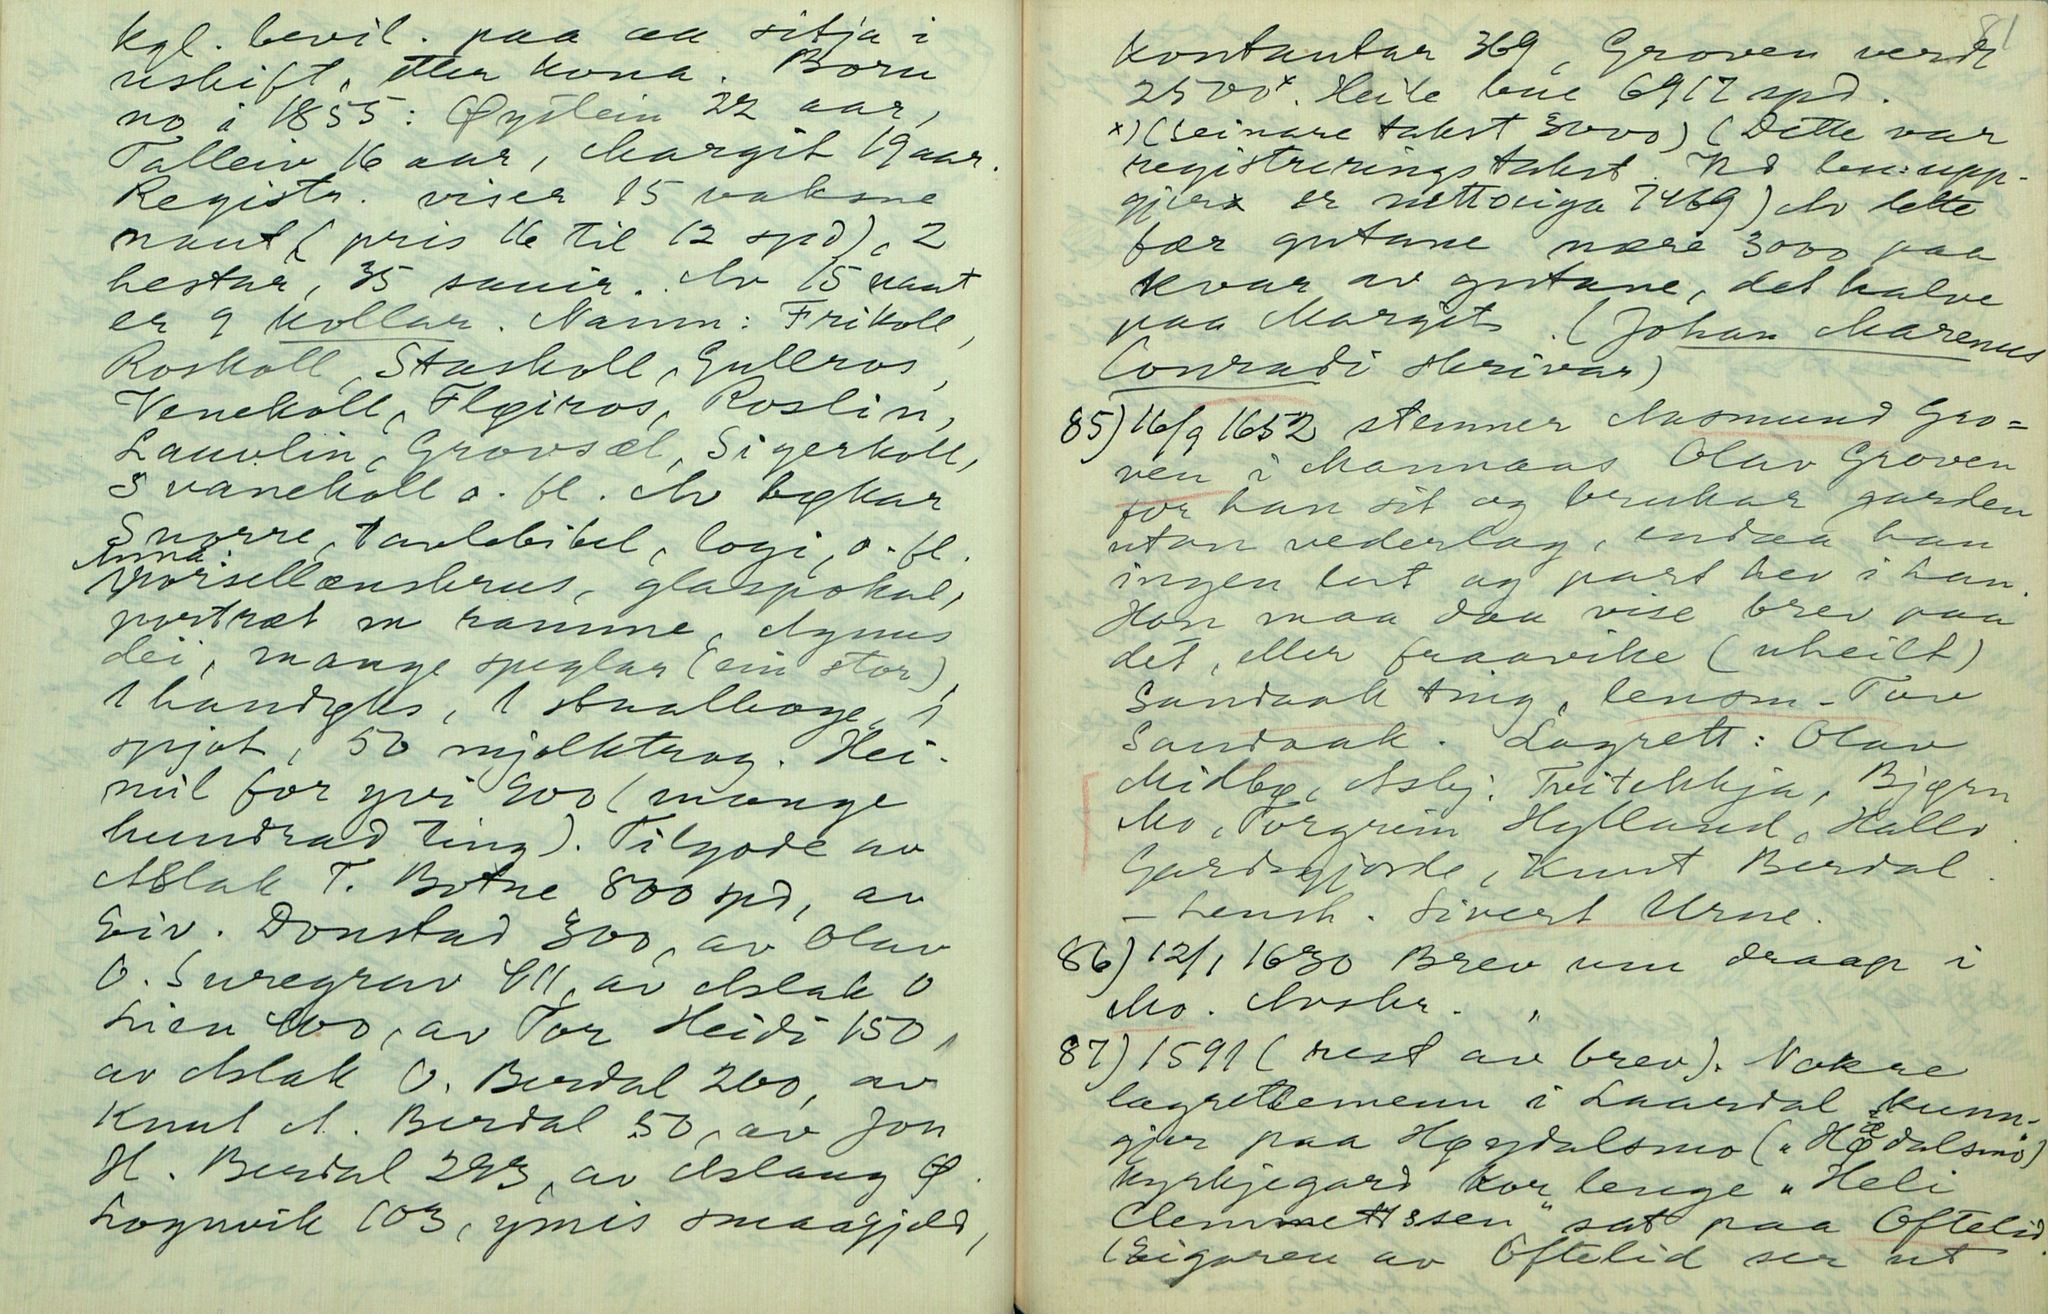 kgl. bevil. paa aa sitja i
uskift, etter kona. Born
no i 1855: Øystein 22 aar,
Talleiv 16 aar, Margit 19 aar.
Registr. viser 15 vaksne
naut (pris 16 til 12 spd), 2
hestar, 35 sauir. Av 15 naut
er 9 kollar. Namn: Frikoll,
Roskoll, Staskoll, Gullros,
Venekoll, Fløiros, Roslin,
Lauvlin, Grovsæl, Sigerkoll,
Svanekoll o. fl. Av bøkar
Snorre, tavlebibel, logi, o. fl.
Anna
Porsellænskrus, glaspokal,
portræt m ramme, Agnus
dei, mange speglar (ein stor),
1 handøks, 1 staalboge, 1
spjot, 50 mjølktrog. Hei-
mil for yvi 900 (mange
hundrad ting). Tilgode av
Aslak T. Botne 800 spd, av
Eiv. Donstad 300, av Olav
O. Suregrav 411, av Aslak O
Lien 400, av Tor Heidi 150,
av Aslak O. Berdal 200, av
Knut A. Berdal 50, av Jon
H. Berdal 293, av Aslaug Ø.
Lognvik 103, ymis smaagjeld,
81
Kontantar 369, Groven verdt
2500x. Heile bue 6917 spd.
x) (seinare takst 3000) (Dette var
registreringstakst. Ved bu-upp-
gjer er nettoeiga 7469) Av dette
fær gutane nære 3000 paa
kvar av gutane, det halve
paa Margit. (Johan Marenus
Conradi skrivar)
85) 16/9 1652 stemner Aasmund Gro=
ven i Mannaas Olav Groven
for han sit og brukar garden
utan vederlag, endaa han
ingen lut og part hev i han.
Han maa daa vise brev paa
det, eller fraavike (uheilt)
Sandaak ting, lensm. Tov
Sandaak. Lagrett: Olav
Midbø, Asbj. Tveitekkja, Bjørn
Mo, Torgrim Hylland, Hallv.
Gardsgjorde, Knut Berdal.
– Lensh. Sivert Urne.
86) 12/1 1630 Brev um draap i
Mo. Avskr. "
87) 1591 (rest av brev). Nokre
lagrettemenn i Laardal kunn-
gjer paa Høydalsmo („Hødalsmo")
kyrkjegard kor lenge „Heli
Clemmettssen" sat paa Oftelid.
(Eigaren av Oftelid ser ut